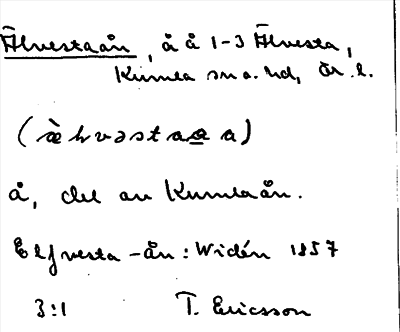 Älvestaån, å å 1-3 Älvesta,
Kumla sn o. hd, Ör. l.
(æ̀ lvəsta a)
å, del av Kumlaån.
Elfvesta-ån: Widén 1857
3:1 T. Ericsson